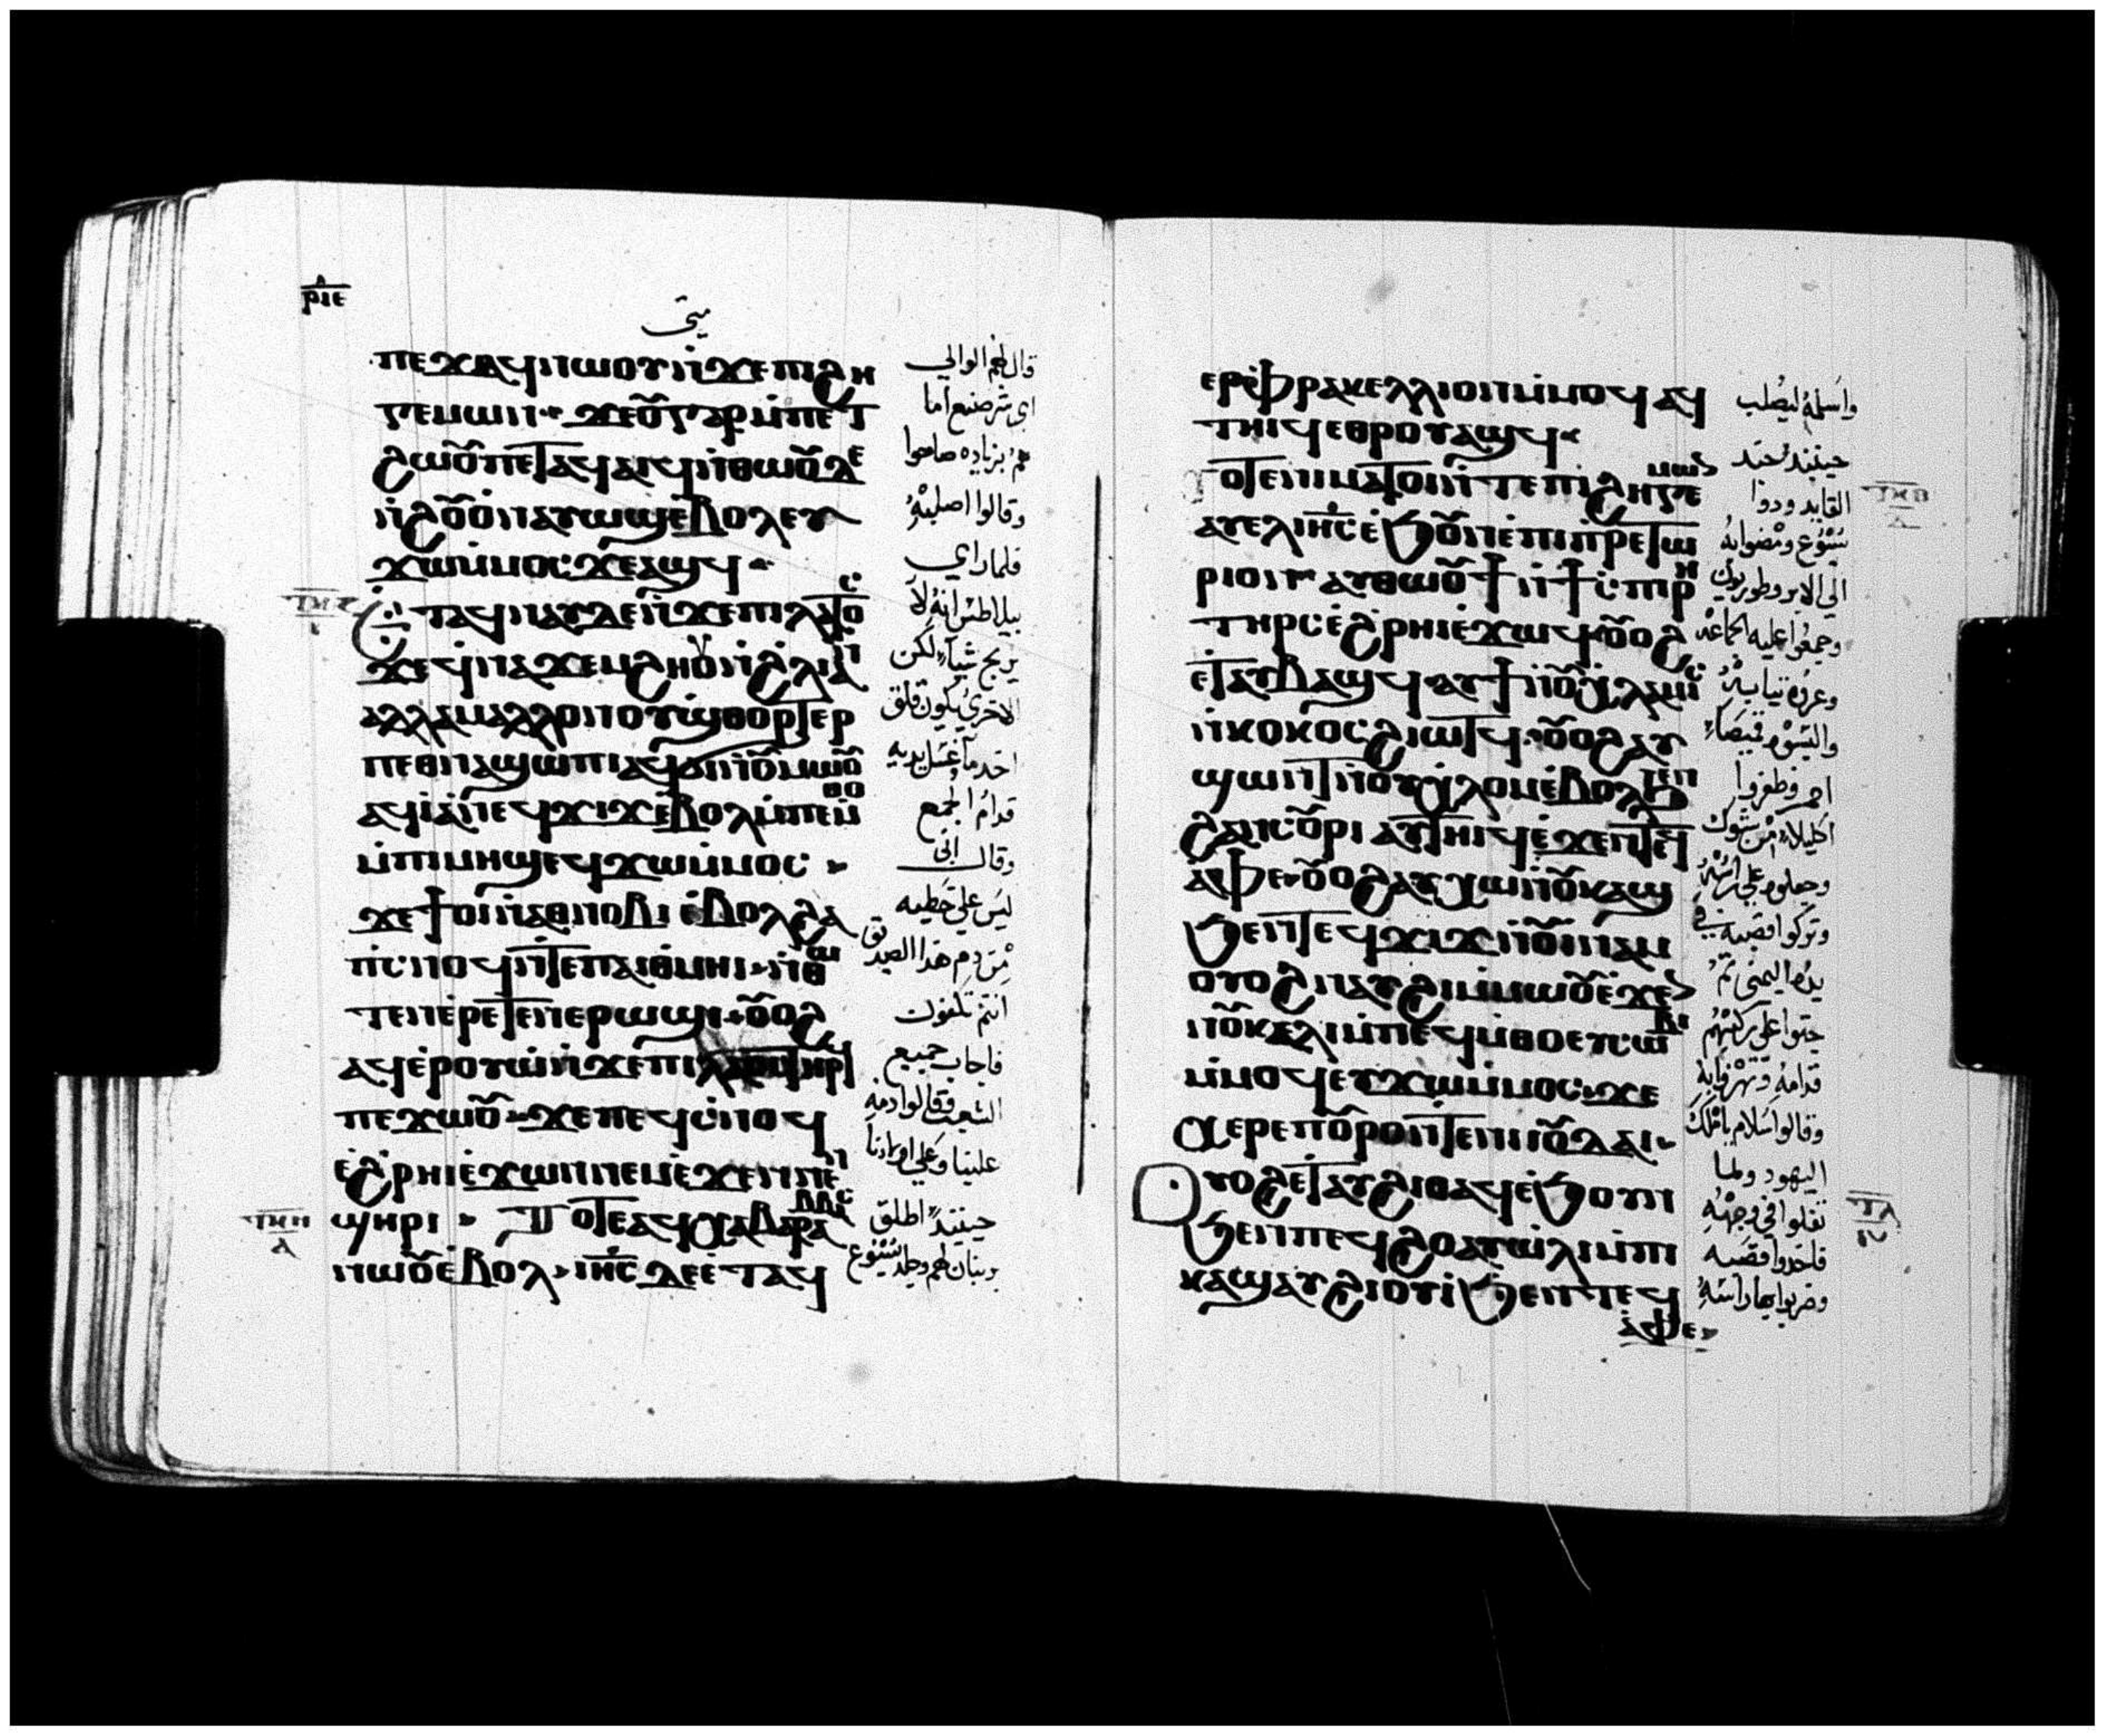 ⲣⲓⲉ
متى
ⲡⲉϫⲁϥⲛⲱⲟⲩⲛ̇ϫⲉⲡⲓϩⲏ
ⲅⲉⲙⲱⲛ ϫⲉⲟ̅ⲅⲁⲣⲙ̇ⲡⲉⲧ
ϩⲱⲟ̅ⲡⲉⲧⲁϥⲁⲓϥⲛ̇ⲑⲱⲟ̅ⲇⲉ
ⲛ̇ϩⲟ̅ⲟ̇ⲛⲁⲩⲱϣⲉ̇ⲃⲟⲗⲉⲩ
ϫⲱⲙ̇ⲙⲟⲥϫⲉⲁϣϥ
ⲉⲧⲁϥⲛⲁⲩⲇⲉⲛ̇ϫⲉⲡⲓⲗⲁⲧⲟⲥ
ϫⲉϥⲛⲁϫⲉⲙϩⲏⲟⲩⲛ̇ϩⲗⲓⲁⲛ
ⲁⲗⲗⲁⲙⲁⲗⲗⲟⲛⲟⲩϣⲑⲟⲣⲧⲉⲣ
ⲡⲉⲑⲛⲁϣⲱⲡⲓⲁϥϭⲓⲛ̇ⲟ̅ⲙⲱⲟ̅
ⲁϥⲓⲁ̇ⲛⲉϥϫⲓϫⲉ̇ⲃⲟⲗⲙ̇ⲡⲉⲙⲑⲟ
ⲙ̇ⲡⲓⲙⲏϣⲉϥϫⲱⲙ̇ⲙⲟⲥ
ϫⲉϯⲟⲓⲛ̇ⲁⲑⲛⲟⲃⲓ ⲉ̇ⲃⲟⲗϩⲁ
ⲡ̇ⲥⲛⲟϥⲛ̇ⲧⲉⲡⲁⲓⲑ̇ⲙⲏⲓ ⲛ̇ⲑⲱ
ⲧⲉⲛⲉ̇ⲣⲉⲧⲉⲛⲉⲣⲱϣⲓ ⲟ̅ⲟϩ
ⲁϥⲉ̇ⲣⲟⲩⲱⲛ̇ϫⲉⲡⲓⲗⲁⲟⲥⲧⲏⲣϥ
ⲡⲉϫⲱⲟ̅ ϫⲉⲡⲉϥⲥ̇ⲛⲟϥ
ⲉ̇ϩⲣⲏⲓⲉ̇ϫⲱⲛⲛⲉⲙⲉ̇ϫⲉⲛⲛⲉⲛ
ϣⲏⲣⲓ ⲧⲟⲧⲉⲁϥⲭⲁⲃⲁⲣⲁⲃⲃⲁⲥ
ⲛⲱⲟ̅ⲉ̇ⲃⲟⲗ ⲓⲏⲥ̅ⲇⲉⲉ̇ⲧⲁϥ
قال لهم الوالي
اي شر صنع اما
هم بزياده صاحوا
وقالوا اصلبه
فلما راي
بيلاطس انه لا
يربح شيا لكن
الاحري يكون قلق
اخد ما غسل يديه
قدام الجمع
وقال اني
ليس علي خطيه
من دم هذا الصديق
انتم تلفون
فاجاب جميع
الشعب فقالوا دمه
علينا وعلي اولادنا
حينيذ اطلق
بربنان لهم وجلد يسوع
ⲧⲙⲏ
ⲁ
ⲉⲣⲫⲣⲁⲅⲉⲗⲗⲓⲟⲛⲙ̇ⲙⲟϥⲁϥ
ⲧⲏⲓϥⲉⲑⲣⲟⲩⲁϣϥ
ⲧⲟⲧⲉⲛⲓⲙⲁⲧⲟⲓⲛ̇ⲧⲉⲡⲓϩⲏⲅⲉⲙⲱⲛ
ⲁⲩⲉⲗⲓⲏⲥ̅ⲉ̇ϧⲟ̅ⲛⲉ̇ⲡⲓⲡ̇ⲣⲉⲧⲱ
ⲣⲓⲟⲛ ⲁⲩⲑⲱⲟ̅ϯⲛ̇ϯⲥ̇ⲡⲓⲣⲏ
ⲧⲏⲣⲥⲉ̇ϩⲣⲏⲓⲉ̇ϫⲱϥ ⲟ̅ⲟϩ
ⲉⲧⲁⲩⲃⲁϣϥ ⲁⲩϯⲛ̇ⲟ̅ⲭⲗⲁⲙⲓⲥ
ⲛ̇ⲕⲟⲕⲟⲥϩⲓⲱⲧϥ ⲟ̅ⲟϩⲁⲩ
ϣⲱⲛⲧⲛ̇ⲟⲩⲭⲗⲟⲙⲉ̇ⲃⲟⲗϧⲉⲛ
ϩⲁⲛⲥⲟ̅ⲣⲓ ⲁⲩⲧⲏⲓϥⲉ̇ϫⲉⲛⲧⲉϥ
ⲁ̇ⲫⲉ ⲟ̅ⲟϩⲁⲩⲭⲱⲛ̇ⲟ̅ⲕⲁϣ
ϧⲉⲛⲧⲉϥϫⲓϫⲛ̇ⲟ̅ⲓⲛⲁⲙ
ⲟⲩⲟϩⲛⲁⲩϩⲓⲙ̇ⲙⲱⲟ̅ⲉ̇ϫⲉⲛ
ⲛⲟ̅ⲕⲉⲗⲓⲙ̇ⲡⲉϥⲙ̇ⲑⲟⲉⲩⲥⲱⲃⲓ
ⲙ̇ⲙⲟϥⲉⲩϫⲱⲙ̇ⲙⲟⲥ ϫⲉ
ⲭⲉⲣⲉⲡⲟ̅ⲣⲟⲛ̇ⲧⲉⲛⲓⲓⲟ̅ⲇⲁⲓ
ⲟⲩⲟϩⲉⲧⲁⲩϩⲓⲑⲁϥⲉ̇ϧⲟⲩⲛ
ϧⲉⲛⲡⲉϥϩⲟⲁⲩⲱ̇ⲗⲓⲙ̇ⲡⲓ
ⲕⲁϣⲁⲩϩⲓⲟⲩⲓ̇ϧⲉⲛⲧⲉϥ
ⲁ̇ⲫⲉ
واسلمه ليصلب
حينيذ جند
القايد ودوا
يسوع ومضوا به
الي الابروطوريون
وجمعوا عليه الجماعه
وعروه ثيابه
والبسوه قميصا
احمر وظفروا
اكليلا من شوك
وجعلوه علي راسه
وتركوا قصبه في
يده اليمنى ثم
جثوا علي ركبهم
قدامه وتهزوا به
وقالوا سلام يا ملك
اليهود ولما
تفلوا في وجهه
فاخدوا قصبه
وضربوا بها راسه
ⲧⲕⲑ